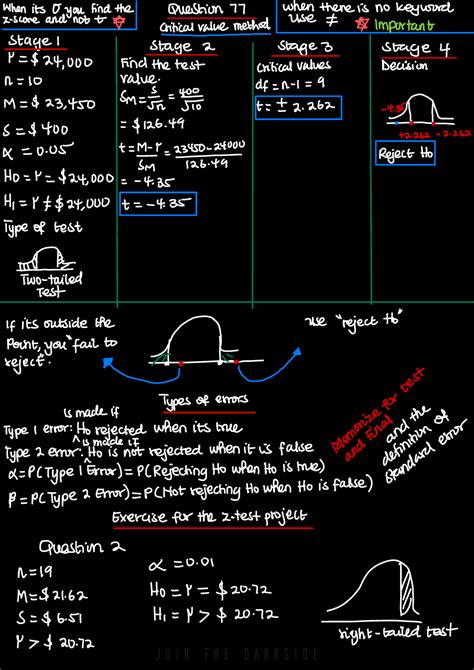 When its σ you find the
z-score and not t
Question 77
Critical value method
when there is no keyword
use ≠
Important
Stage 1
μ = $24,000
n = 10
M = $23,450
s = $400
α = 0.05
H0 = μ = $24,000
H1 = μ ≠ $24,000
Type of test
Two-tailed
Test
Stage 2
Find the test
value.
SM = s/√n = 400/√10
= $126.49
t = M-μ/SM = 23450-24000/126.49
= -4.35
t = -4.35
Stage 3
Critical values
df = n-1 = 9
t = ± 2.262
Stage 4
Decision
-4.35
+2.262 -2.262
Reject H0
If its outside the
Point, you "fail to
reject".
use "reject H0"
Types of errors
is made if
Type 1 error: H0 rejected when its true
is made if
Type 2 error: H0 is not rejected when it is false
α = P(Type 1 Error) = P(Rejecting H0 when H0 is true)
β = P(Type 2 Error) = P(Not rejecting H0 when H0 is false)
Memorize for test
and final
and the
definition of
standard error
Exercise for the z-test project
Question 2
n = 19
M = $21.62
S = $6.51
μ > $20.72
α = 0.01
H0 = μ = $20.72
H1 = μ > $20.72
right-tailed test
JOIN THE DARKSIDE